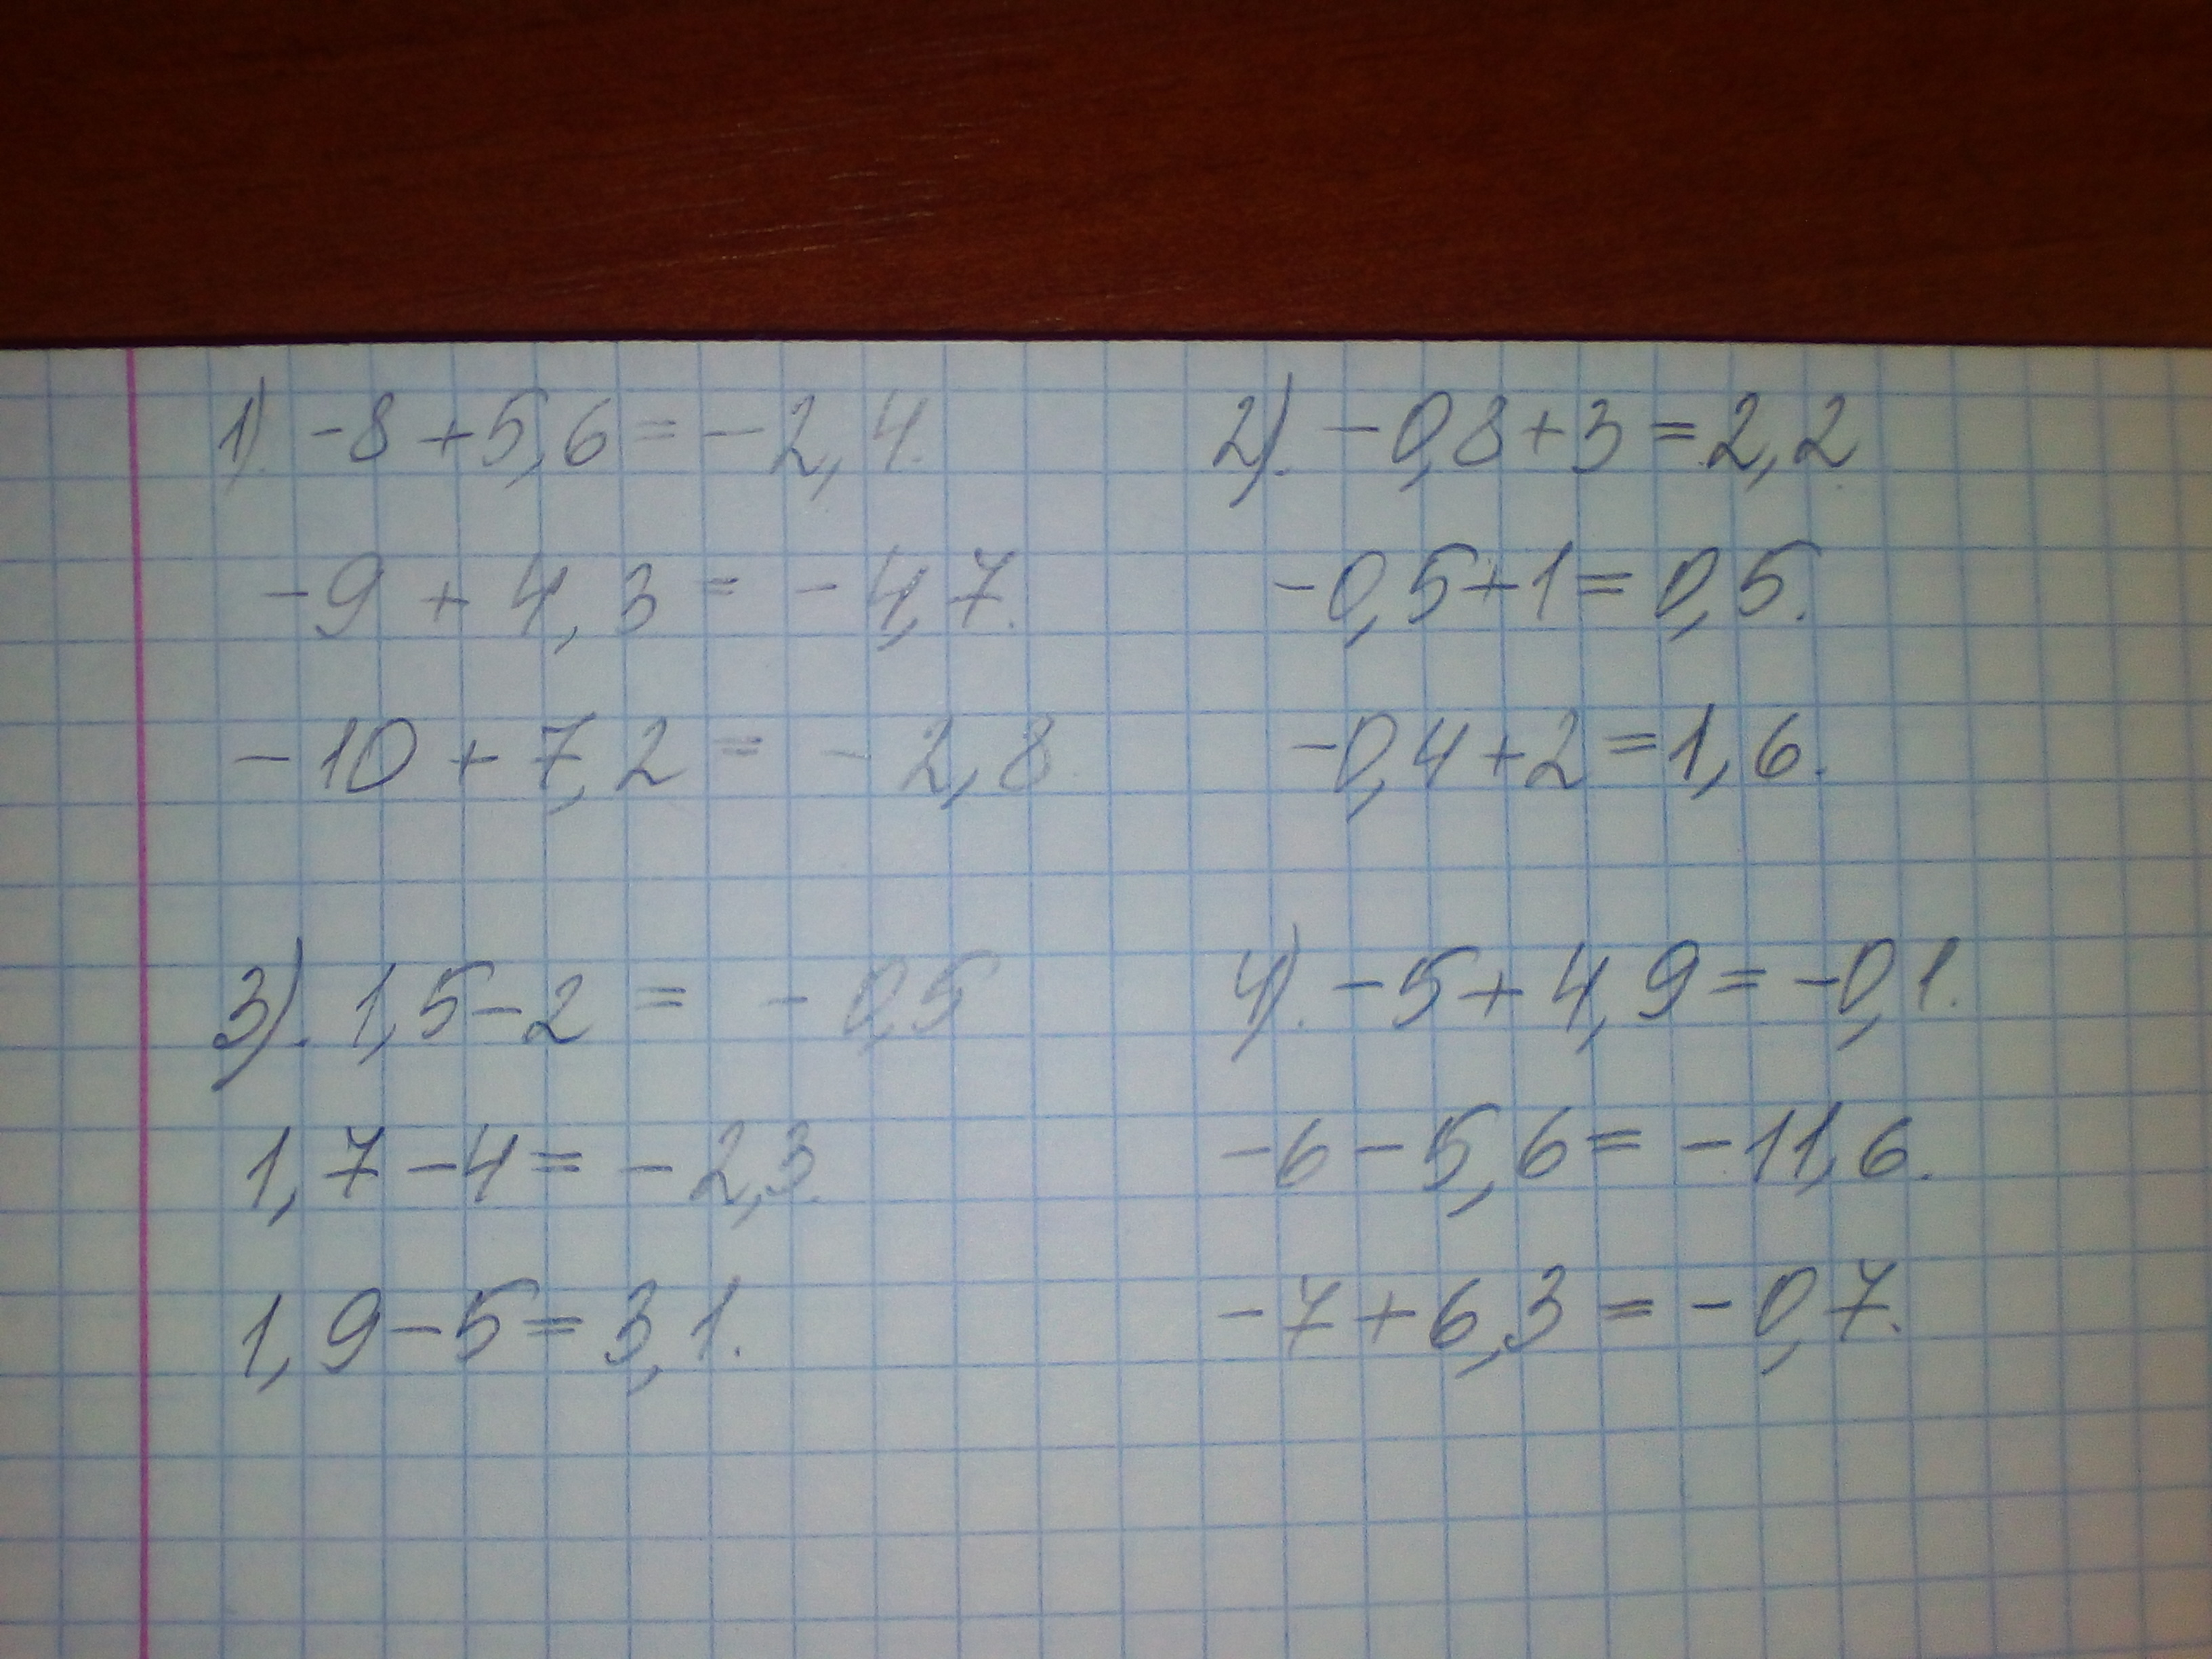 1). -8 + 5,6 = -2,4.
-9 + 4,3 = -4,7.
-10 + 7,2 = -2,8.
2). -0,8 + 3 = 2,2
-0,5 + 1 = 0,5.
-0,4 + 2 = 1,6.
3). 1,5 - 2 = -0,5
1,7 - 4 = -2,3.
1,9 - 5 = 3,1.
4). -5 + 4,9 = -0,1.
-6 - 5,6 = -11,6.
-7 + 6,3 = -0,7.